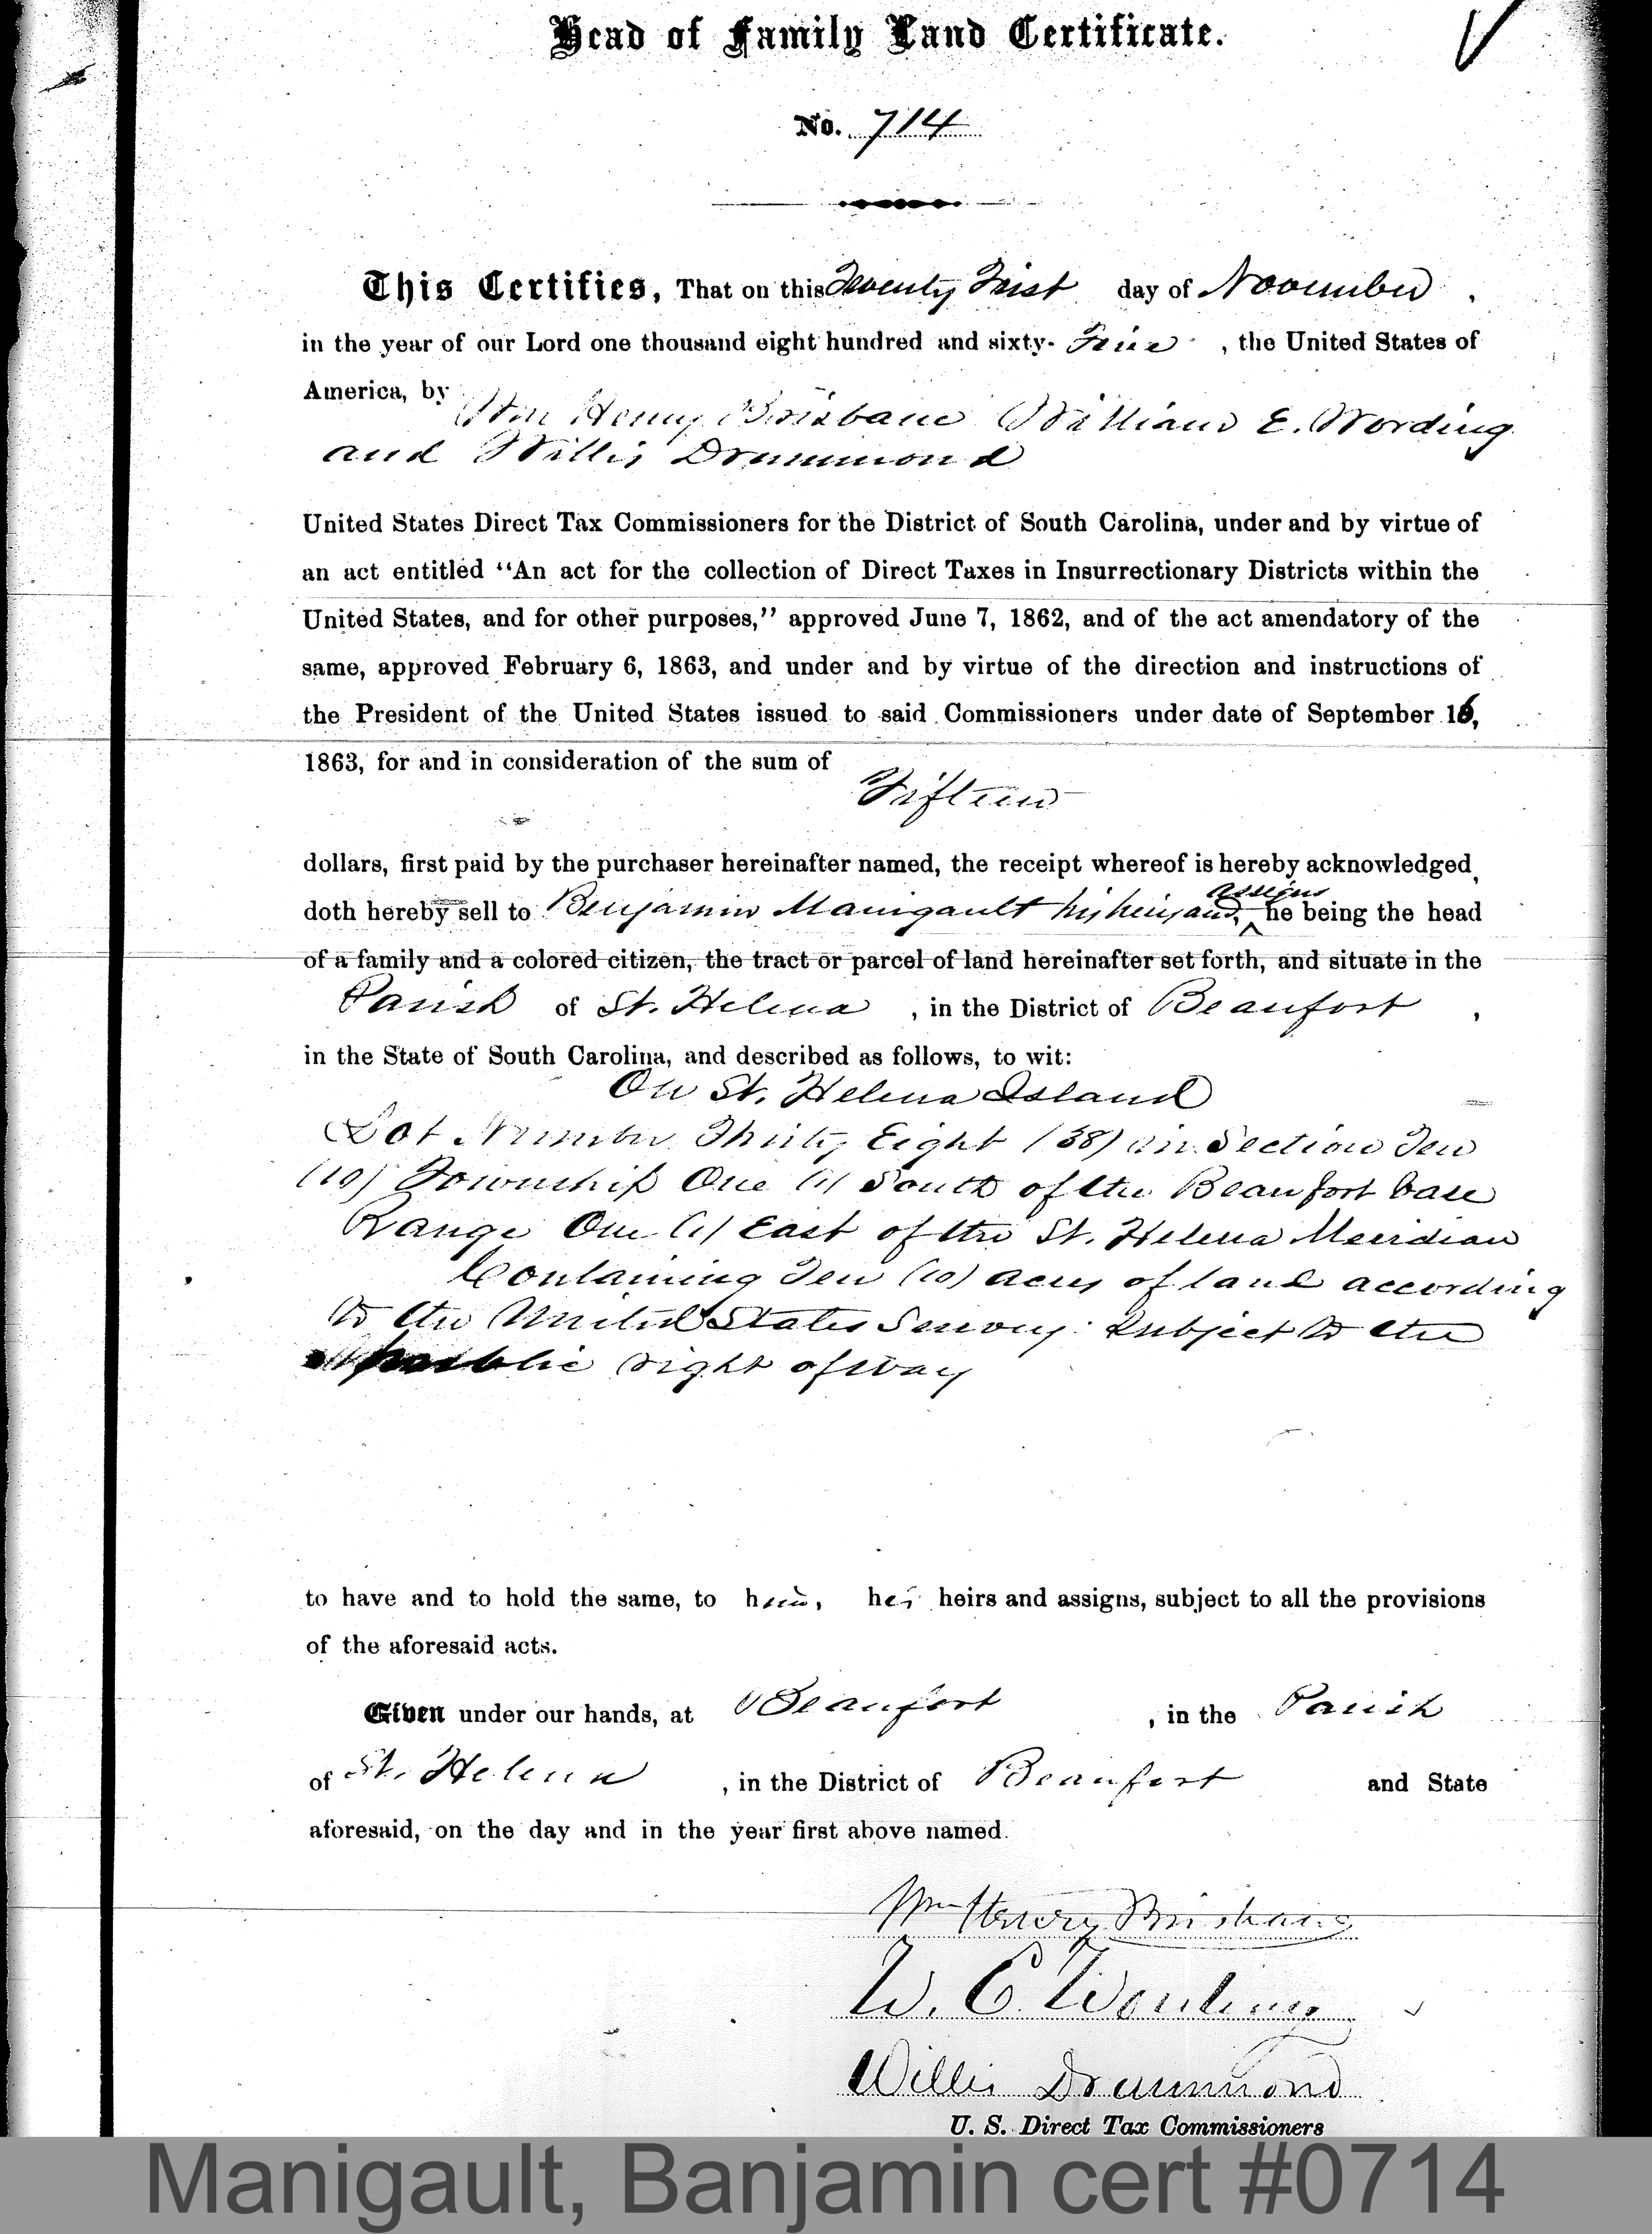 Head of Family Land Certificate.
No. 714
This Certifies, That on this Twenty First day of November,
in the year of our Lord one thousand eight hundred and sixty-Five, the United States of
America, by
Wm Henry Brisbane William E. Wording
and Willis Drummond
United States Direct Tax Commissioners for the District of South Carolina, under and by virtue of
an act entitled "An act for the collection of Direct Taxes in Insurrectionary Districts within the
United States, and for other purposes," approved June 7, 1862, and of the act amendatory of the
same, approved February 6, 1863, and under and by virtue of the direction and instructions of
the President of the United States issued to said Commissioners under date of September 16,
1863, for and in consideration of the sum of
Fifteen
dollars, first paid by the purchaser hereinafter named, the receipt whereof is hereby acknowledged,
doth hereby sell to Benjamin Manigault his heirs and assigns he being the head
of a family and a colored citizen, the tract or parcel of land hereinafter set forth, and situate in the
Parish of St. Helena, in the District of Beaufort,
in the State of South Carolina, and described as follows, to wit:
On St. Helena Island
Lot Number Thirty Eight (38) in Section Ten
(10) Township One (1) South of the Beaufort base
Range One (1) East of the St. Helena Meridian
Containing Ten (10) acres of land according
to the United States Survey. Subject to the
public right of way
to have and to hold the same, to him, his heirs and assigns, subject to all the provisions
of the aforesaid acts.
Given under our hands, at Beaufort, in the Parish
of St. Helena, in the District of Beaufort and State
aforesaid, on the day and in the year first above named.
Wm Henry Brisbane
W. E. Wording
Willis Drummond
U. S. Direct Tax Commissioners
Manigault, Banjamin cert #0714